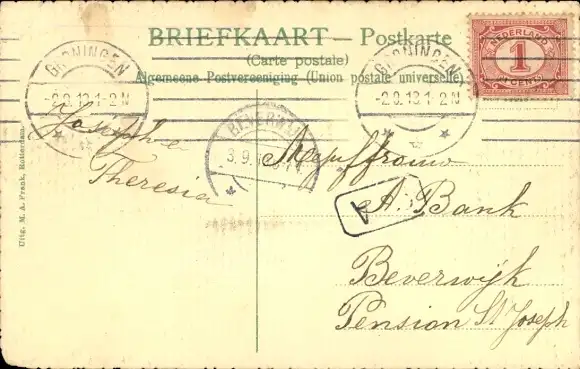 BRIEFKAART — Postkarte
(Carte postale)
Algemeene Postvereeniging (Union postale universelle)
NEDERLAND
1
CENT
GRONINGEN
-2.9.13.1-2N
GRONINGEN
-2.9.13.1-2N
BEVERW
3.9.
Josephie
Theresia
Mejuffrouw
A. Bank
Beverwijk
Pension St Joseph
1
Uitg. M. A. Frank, Rotterdam.